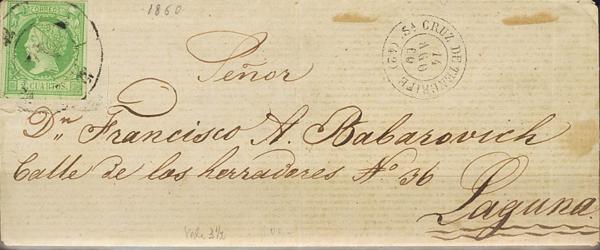 1860
CORREOS
4 CUARTOS.
Sᴬ CRUZ DE TENERIFE. (42)
14
AGO
60
Señor
Dn Francisco A. Babarovich
Calle de los herradores No 36
Laguna.
Vale 3½